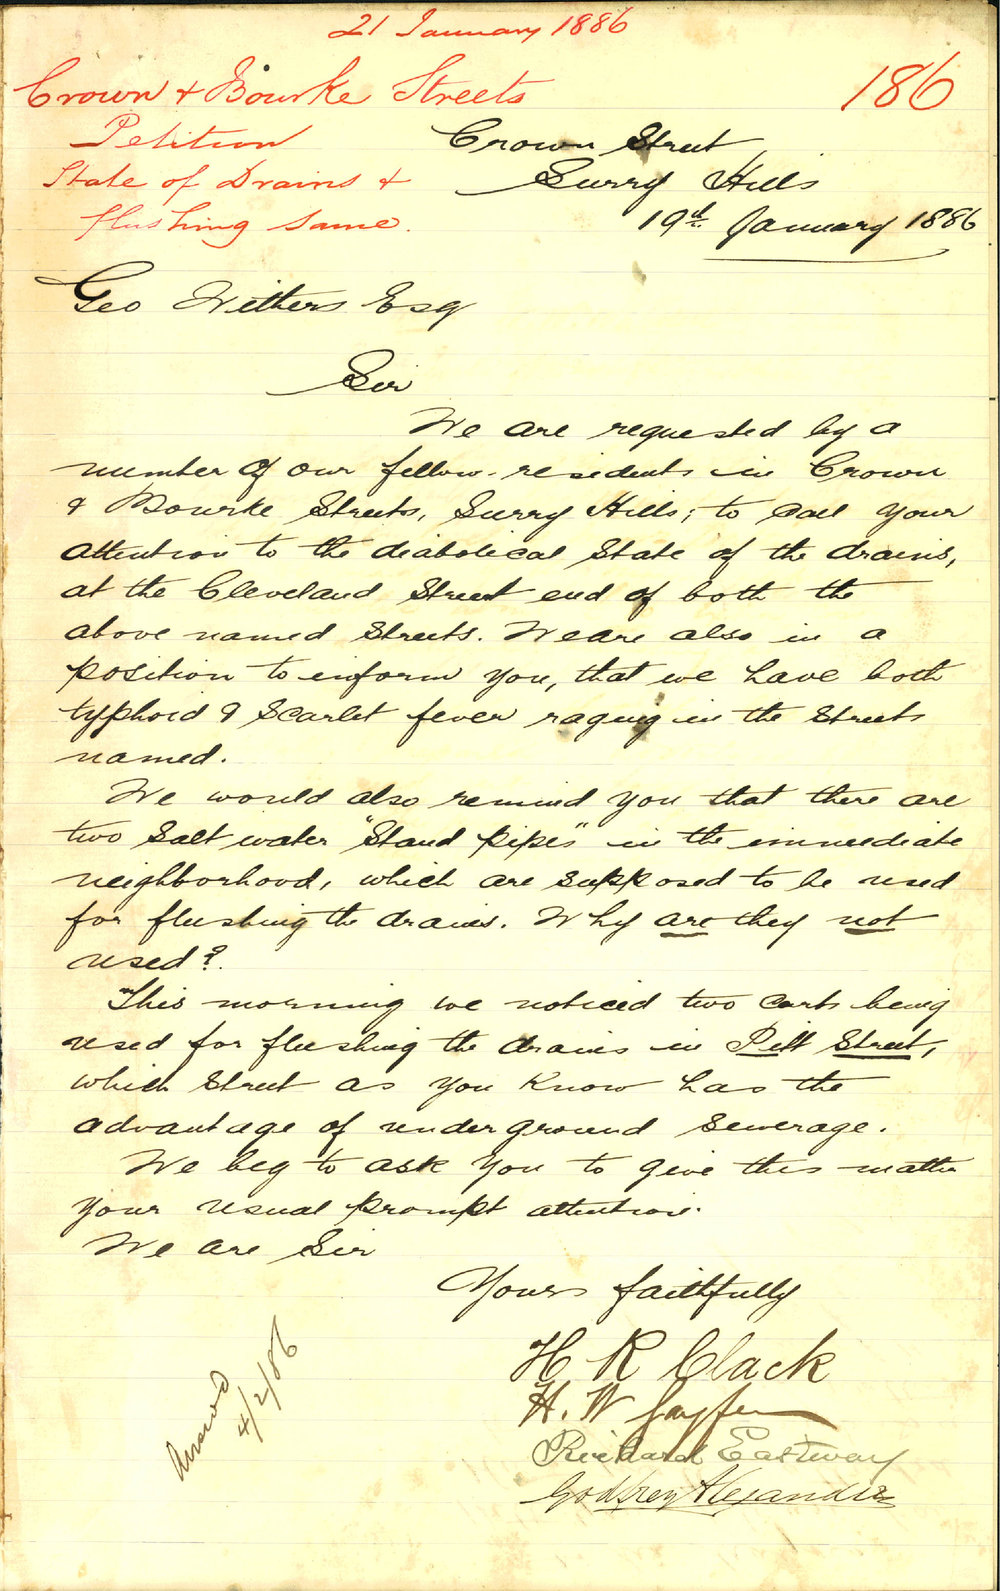 21 January 1886
Crown & Bourke Streets
186
Petition
State of Drains &
flushing same.
Crown Street
Surry Hills
19th January 1886
Geo Withers Esq
Sir
We are requested by a
number of our fellow-residents in Crown
& Bourke Streets, Surry Hills; to call your
attention to the diabolical state of the drains,
at the Cleveland Street end of both the
above named Streets. We are also in a
position to inform you, that we have both
typhoid & Scarlet fever raging in the Streets
named.
We would also remind you that there are
two Salt water "Stand pipes" in the immediate
neighborhood, which are supposed to be used
for flushing the drains. Why are they not
used?
This morning we noticed two carts being
used for flushing the drains in Pitt Street,
which Street as you know has the
advantage of underground sewerage.
We beg to ask you to give this matter
your usual prompt attention.
We are Sir
Yours faithfully
H R Clack
H. W
Richard Eastway
Godfrey Alexander
4/2/86